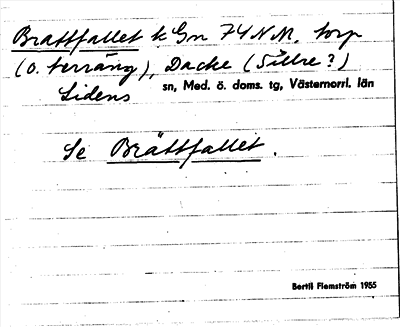 Brattfallet k Gn 74 N.M. torp
(o. terräng), Dacke (Sillre?)
Lidens sn, Med. ö. doms. tg, Västernorrl. län
Se Brättfallet.
Bertil Flemström 1955